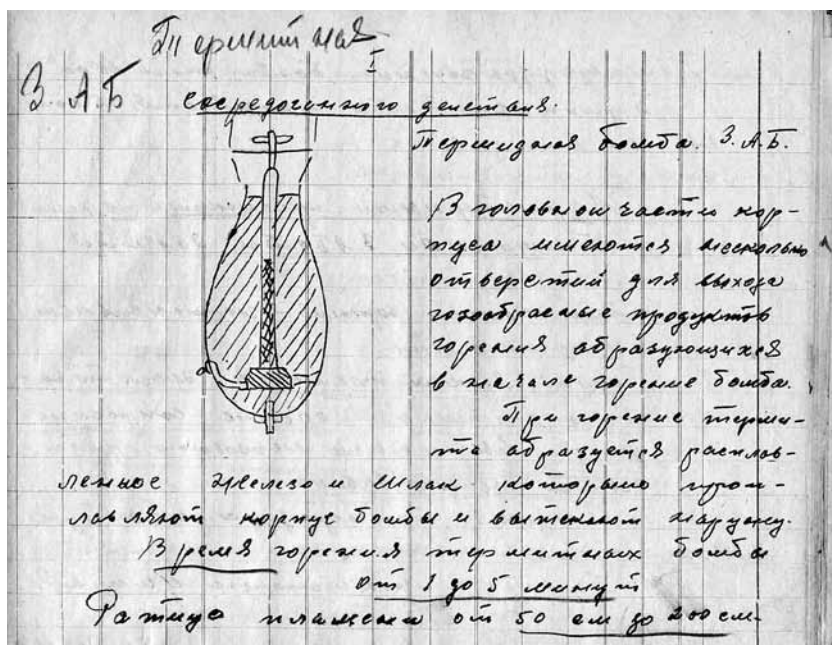 Термитная
I
З А Б
сосредоточенного действия.
Термидная бомба. З.А.Б.
В головной части кор-
пуса имеются несколько
отверстий для выхода
газообразные продуктов
горения образующихся
в начале горение бомба.
При горение терми-
та образуется расплав-
ленное железо и шлак которые проп-
лавляют корпус бомбы и вытекают наружу.
Время горения термитных бомбы
от 1 до 5 минут
пламени от 50 см до 200 см.